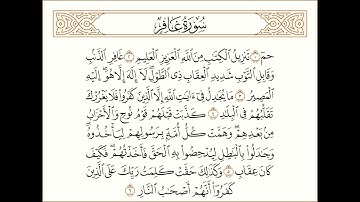 سُورَةُ غَافِرٍ
حمٓ ۝١ تَنزِيلُ ٱلْكِتَٰبِ مِنَ ٱللَّهِ ٱلْعَزِيزِ ٱلْعَلِيمِ ۝٢ غَافِرِ ٱلذَّنۢبِ
وَقَابِلِ ٱلتَّوْبِ شَدِيدِ ٱلْعِقَابِ ذِى ٱلطَّوْلِ ۖ لَآ إِلَٰهَ إِلَّا هُوَ ۖ إِلَيْهِ
ٱلْمَصِيرُ ۝٣ مَا يُجَٰدِلُ فِىٓ ءَايَٰتِ ٱللَّهِ إِلَّا ٱلَّذِينَ كَفَرُوا۟ فَلَا يَغْرُرْكَ
تَقَلُّبُهُمْ فِى ٱلْبِلَٰدِ ۝٤ كَذَّبَتْ قَبْلَهُمْ قَوْمُ نُوحٍ وَٱلْأَحْزَابُ
مِنۢ بَعْدِهِمْ ۖ وَهَمَّتْ كُلُّ أُمَّةٍۭ بِرَسُولِهِمْ لِيَأْخُذُوهُ ۖ
وَجَٰدَلُوا۟ بِٱلْبَٰطِلِ لِيُدْحِضُوا۟ بِهِ ٱلْحَقَّ فَأَخَذْتُهُمْ ۖ فَكَيْفَ
كَانَ عِقَابِ ۝٥ وَكَذَٰلِكَ حَقَّتْ كَلِمَتُ رَبِّكَ عَلَى ٱلَّذِينَ
كَفَرُوٓا۟ أَنَّهُمْ أَصْحَٰبُ ٱلنَّارِ ۝٦